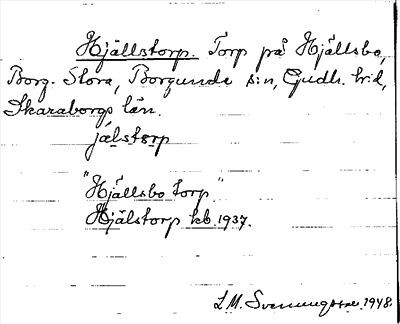 Hjällstorp. Torp på Hjällsbo,
Borg. Stora, Borgunda s:n, Gudh. hd,
Skaraborgs län.
jälstorp
"Hjällsbo torp"
Hjälstorp kb. 1937.
L.M. Svenungsson 1948.